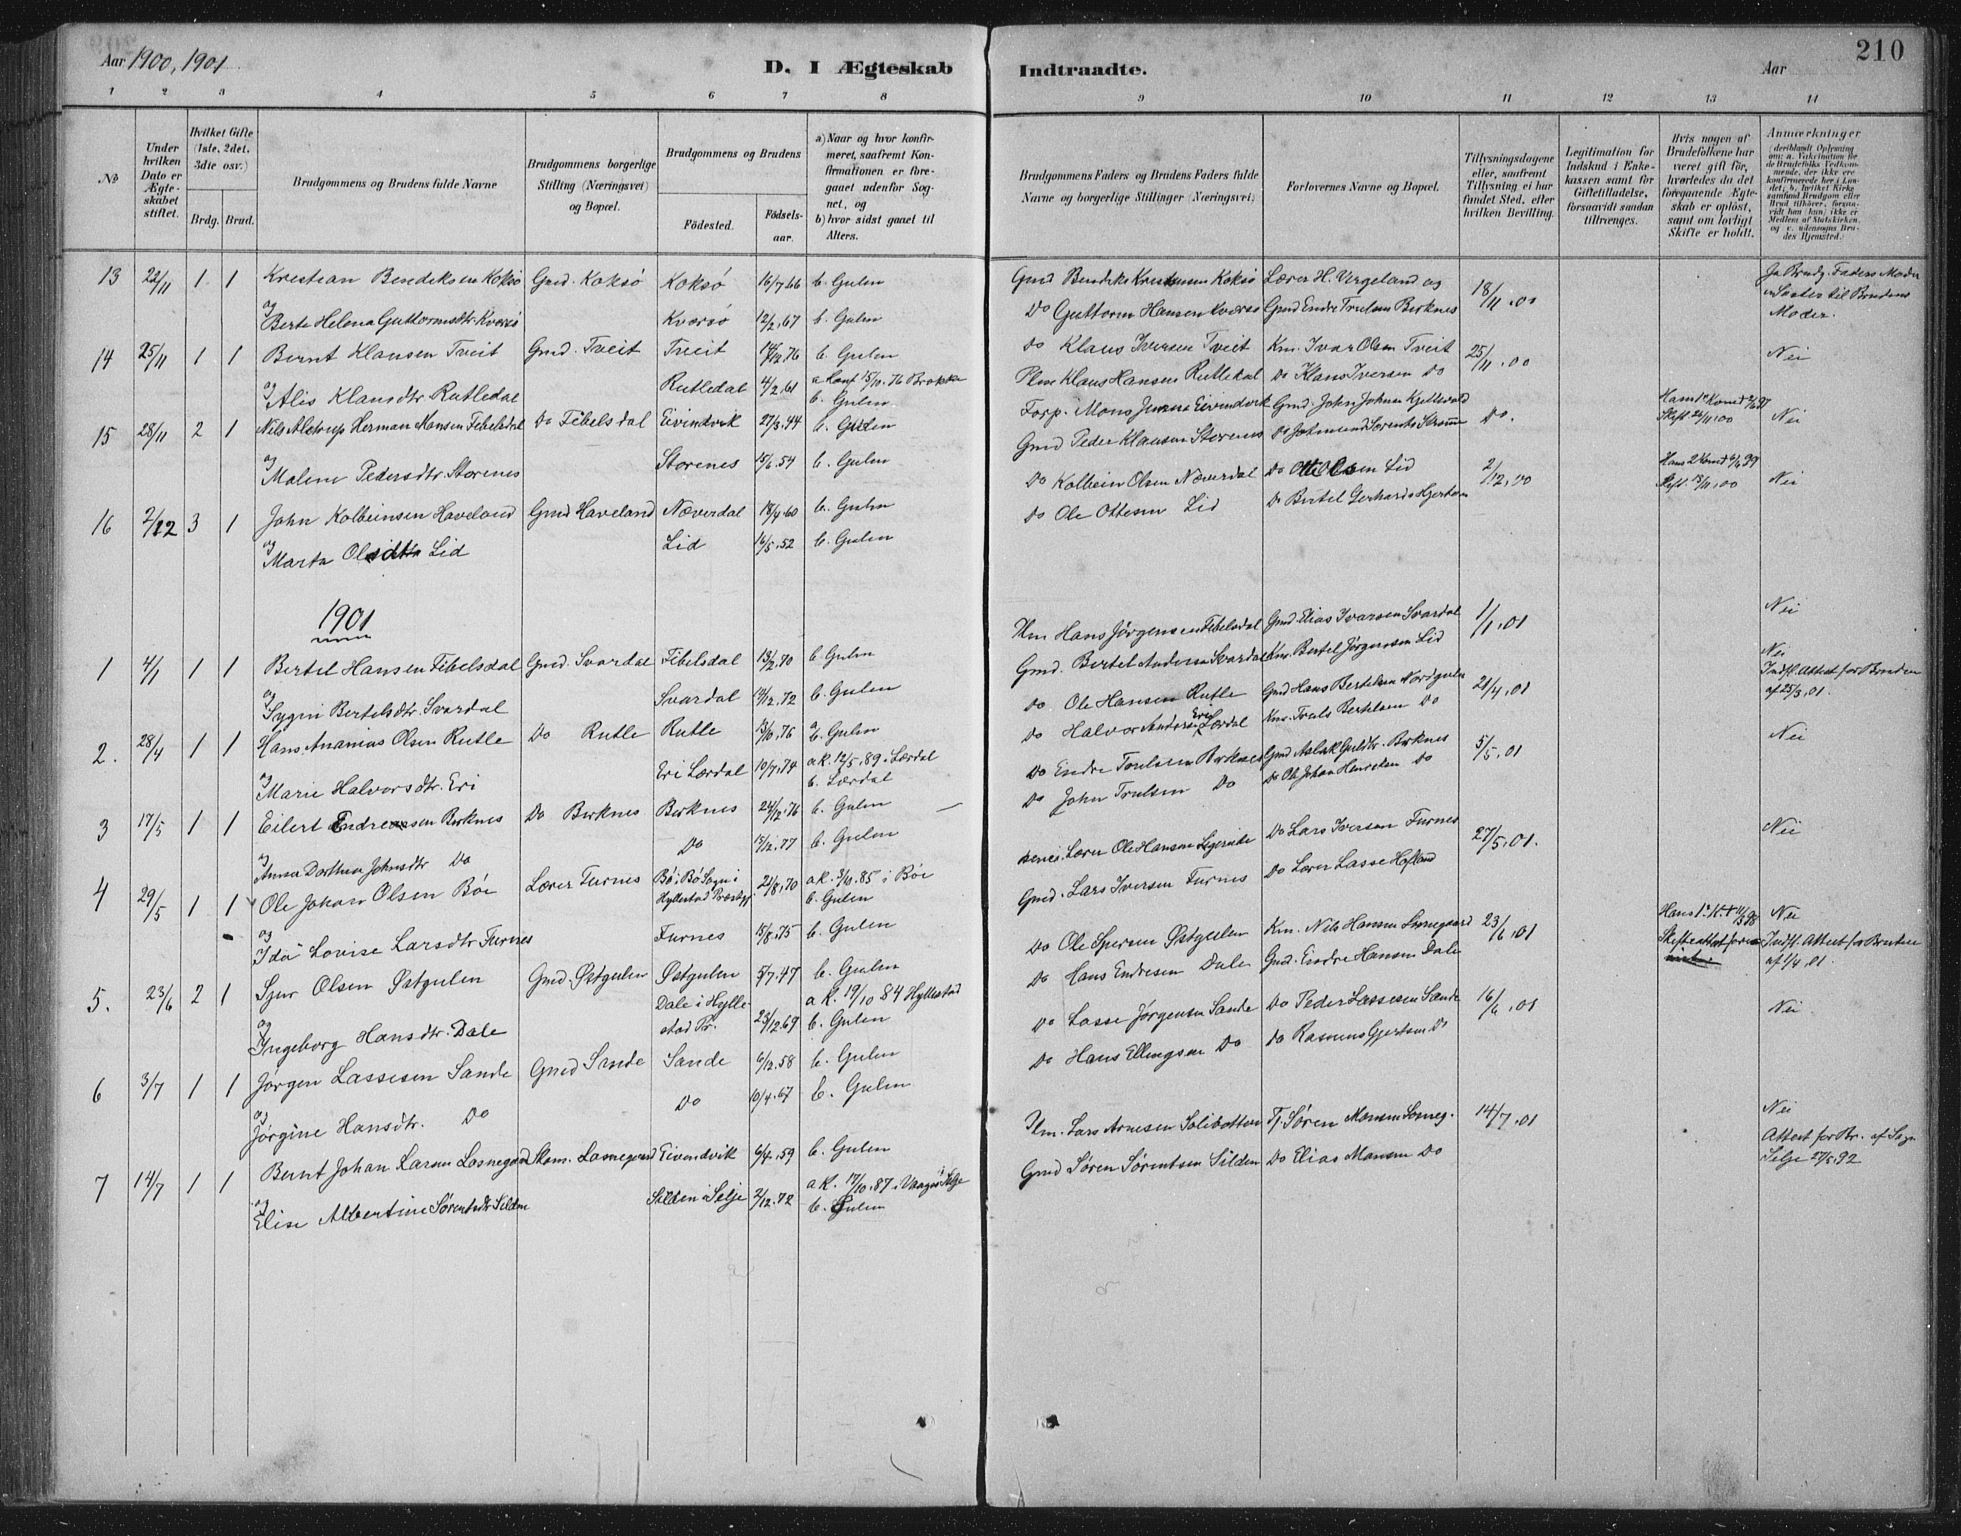 Aar 1900, 1901
D. I Ægteskab
Indtraadte.
Aar
210
1 2 3 4 5 6 7 8 9 10 11 12 13 14
No
Under hvilken Dato er Ægteskabet stiftet.
Hvilket Gifte (1ste, 2det, 3die osv.)
Brdg. Brud.
Brudgommens og Brudens fulde Navne
Brudgommens borgerlige Stilling (Næringsvei) og Bopæl.
Brudgommens og Brudens
Fødested.
Fødselsaar.
a) Naar og hvor konfirmeret, saafremt Konfirmationen er foregaaet udenfor Sognet, og
b) hvor sidst gaaet til Alters.
Brudgommens Faders og Brudens Faders fulde Navne og borgerlige Stillinger (Næringsvei)
Forlovernes Navne og Bopæl.
Tillysningsdagene eller, saafremt Tillysning ei har fundet Sted, efter hvilken Bevilling.
Legitimation for Indskud i Enkekassen samt for Giftetilladelse, forsaavidt saadan tiltrænges.
Hvis nogen af Brudefolkene har været gift før, hvorledes da det foregaaende Ægteskab er opløst, samt om lovligt Skifte er holdt.
Anmærkninger
13 22/11 1 1 Krestian Bendiksen Koksø Gmd. Koksø Koksø 16/7 66 b. Gulen
og Berte Helena Guttormsdtr. Kversø Kversø 12/2.67 b. Gulen
Gmd Bendik Krestensen Koksø Lærer H. Vergeland og 18/11.00
Do Guttorm Hansen Kversø Gmd Endre Trulsen Birknes
Ja Brudg. Faders Moder
Søster til Brudens Moder.
14 25/11 1 1 Bernt Klausen Tveit Gmd. Tveit Tveit b. Gulen
og Alis Klausdtr Rutledal Rutledal 4/2.61 a Konf 15/10.76 Brekke
b. Gulen
Do Klaus Iversen Tveit Km. Ivar Olsen Tveit 25/11.00 Nei
Klaus Hansen Rutledal Do Klaus Iversen Do
15 28/11 2 1 Nils Alstrup Herman Monsen Fibelsdal Do Fibelsdal Eivindvik 27/3.44 b. Gulen
og Malene Pedersdtr. Storenes Storenes 15/6.54 b. Gulen
Gmd Peder Klausen Storenes Do. Nei
16 2/12 3 1 John Kolbeinsen Haveland Gmd Haveland Næverdal 18/4.60 b. Gulen
og Marta Olsdtr Lid Lid 16/5.52 b. Gulen
Do Kolbein Olsen Næverdal Do Olsen Lid 2/12.00
Do Ole Ottesen Lid Do Bertel Gerhards Hjertøen
Nei
1901
1 4/1 1 1 Bertel Hansen Fibelsdal Gmd. Svardal Fibelsdal 13/2.70 b. Gulen
og Sygni Bertelsdtr. Svardal Svardal b. Gulen
Hans Jørgensen Fibelsdal Gmd Elias Ivarsen Svardal 1/1.01 Nei
Gmd. Bertel Andersen Svardal Km. Bertel Jørgensen Lid
2. 28/4 1 1 Hans Ananias Olsen Rutle Do Rutle Rutle 13/10.76 b. Gulen
og Marie Halvorsdtr. Eri Eri Lærdal 10/7.74 a K. 12/5.89 i Lærdal
b. Lærdal
Do Ole Hansen Rutle Gmd Hans Bertelsen Nordgulen 21/4.01
Do Halvor Andersen Eri Lærdal Km. Truls Bertelsen Do
Nei
Indfl. Attest for Bruden af 25/3.01.
3 17/5 1 1 Eilert Endresen Birknes Do Birknes Birknes 24/12.76 b. Gulen
og Anna Dorthea Johnsdtr Do Do 17/12.77 b. Gulen
Do Endre Trulsen Birknes Gmd Aslak Guldtr. Birknes 5/5.01 Nei
Do John Trulsen Do Do Ole Johan Henriksen Do
4 29/5 1 1 Ole Johan Olsen Böe Lærer Furnes Bö i Bö Sogn i Hyllestad Præstgj. 21/8.70 a K. 3/10.85 i Böe
b. Gulen
og Ida Lovise Larsdtr Furnes Furnes 15/8.75 b. Gulen
Lærer Ole Hansen Do Lars Iversen Furnes 27/5.01. Nei
Gmd. Lars Iversen Furnes Do Lærer Lasse Hefland
5. 23/6 2 1 Sjur Olsen Østgulen Gmd. Østgulen Østgulen 5/7.47 b. Gulen
og Ingeborg Hansdtr. Dale Dale i Hyllestad Pr. 23/12.69 a K. 19/10 84 Hyllestad
b. Gulen
Do Ole Spersen Østgulen Km. Nils Hansen 23/6.01
Do Hans Endresen Dale Gmd. Endre Hansen Dale
Nei
Indfl. Attest for Bruden af 1/4.01.
6 3/7 1 1 Jørgen Lassesen Sande Gmd Sande Sande 6/12.58 b. Gulen
og Jørgine Hansdtr. Do Do 10/4.67 b. Gulen
Do Lasse Jørgensen Sande Do Peder Lassesen Sande 16/6.01 Nei
Do Hans Ellingsen Do Do Rasmus Gjertsen Do
7 14/7 1 1 Bernt Johan Larsen Losnegaard Losnegaard Eivendvik 6/4.59 b. Gulen
og Elise Albertine Sørentsdtr Silden Silden i Selje 2/12.72 a K. 17/10.87 i Vaagsø Selje
b. Gulen
Lars Arnesen Solibotten Søren Monsen Losneg. 14/7.01
Gmd Søren Sørentsen Silden Do Elias Monsen Do
Nei
Attest for Br. af Sogn Selje 27/5.92